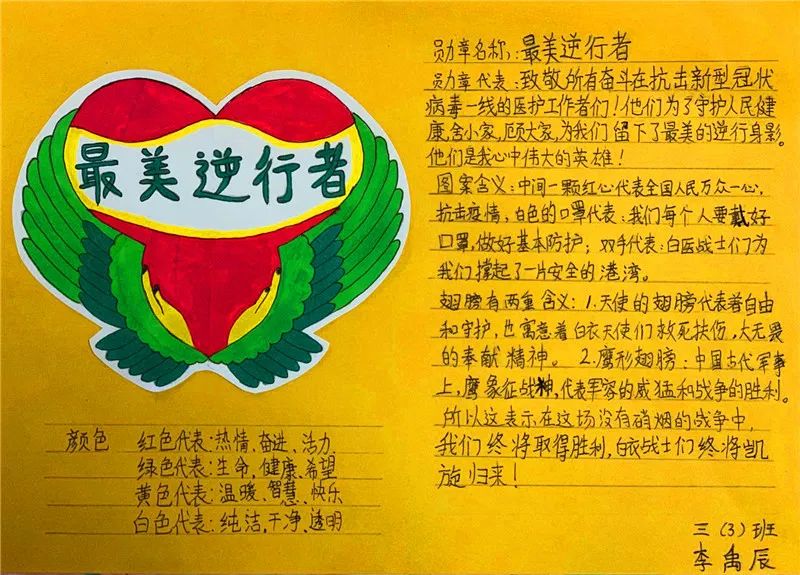 最美逆行者
颜色 红色代表:热情、奋进、活力
绿色代表:生命、健康、希望
黄色代表:温暖、智慧、快乐
白色代表:纯洁、干净、透明
勋章名称:最美逆行者
勋章代表:致敬所有奋斗在抗击新型冠状
病毒一线的医护工作者们!他们为了守护人民健
康,舍小家,顾大家,为我们留下了最美的逆行身影。
他们是我心中伟大的英雄!
图案含义:中间一颗红心代表全国人民万众一心,
抗击疫情,白色的口罩代表:我们每个人要戴好
口罩,做好基本防护;双手代表:白医战士们为
我们撑起了一片安全的港湾。
翅膀有两重含义:1.天使的翅膀代表着自由
和守护,也寓意着白衣天使们救死扶伤,大无畏
的奉献精神。2.鹰形翅膀:中国古代军事
上,鹰象征战神,代表军容的威猛和战争的胜利。
所以这表示在这场没有硝烟的战争中,
我们终将取得胜利,白衣战士们终将凯
旋归来!
三(3)班
李禹辰